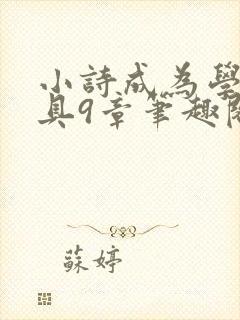 小詩成為學
具9章筆趣閱
蘇婷